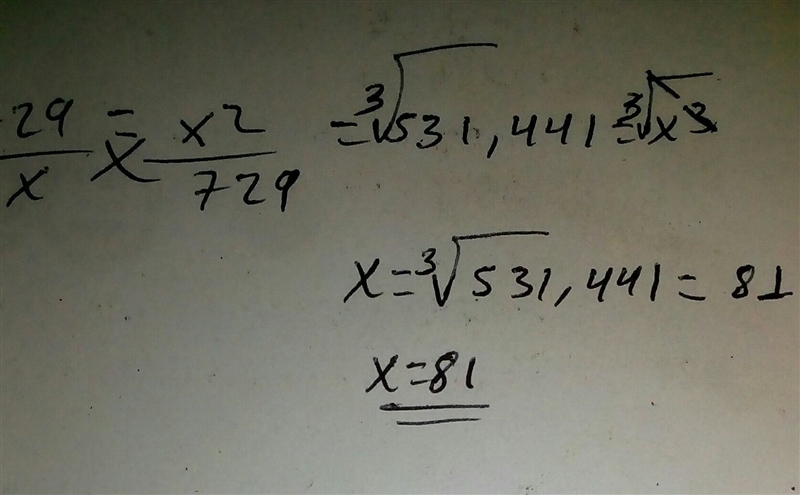 29/x = x2/729 = ∛531,441 = ∛x3
x = ∛531,441 = 81
x = 81